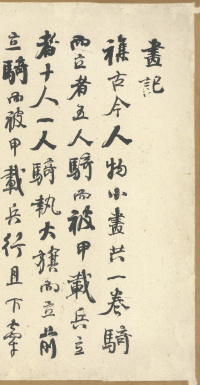 畫記
雜古今人物小畫共一卷騎
而立者五人騎而被甲載兵立
者十人一人騎執大旗前立前
立騎而被甲載兵行且下牽